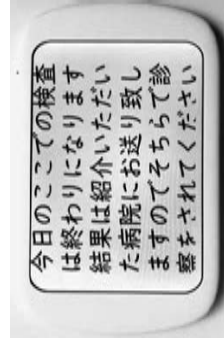 今日のここでの検査
は終わりになります
結果は紹介いただい
た病院にお送り致し
ますのでそちらで診
察をされてください